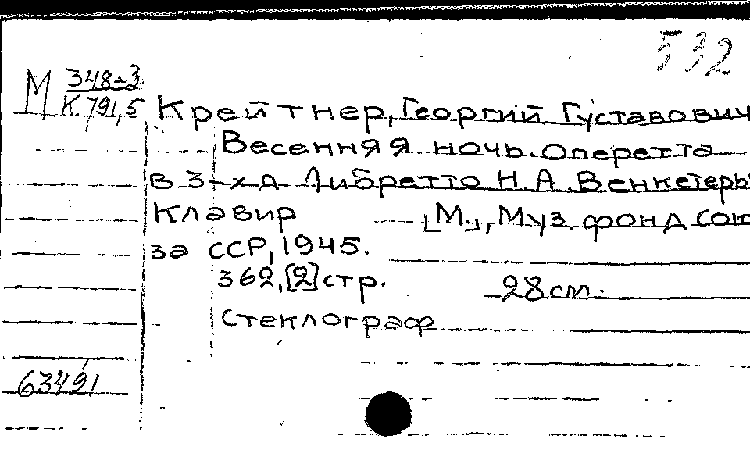 532
М 348-3
К.791,5
Крейтнер, Георгий Густавович
Весенняя ночь. Оперетта
в 3-х д. Либретто Н.А. Венкстеры
Клавир [М.], Муз. фонд Сою
за ССР, 1945.
362, [2] стр. 28 см.
Стеклограф
63491